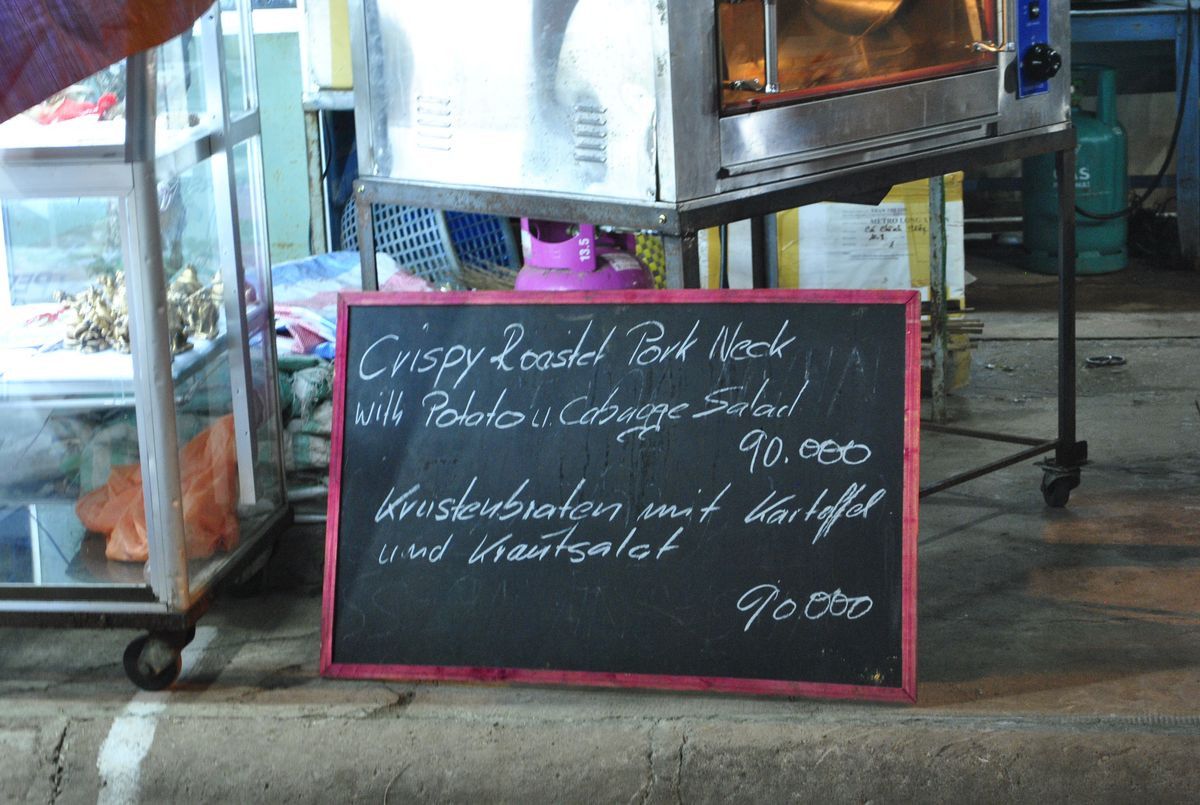 Crispy Roasted Pork Neck
with Potato u. Cabagge Salad
90.000
Krustenbraten mit Kartoffel
und Krautsalat
90.000
13.5
GAS
METRO LONG